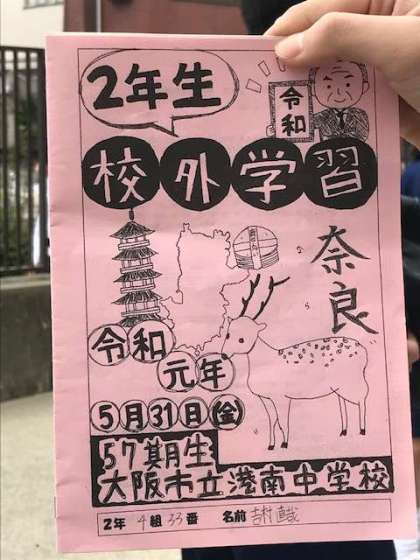 2年生
令和
校外学習
奈良
令和
元年
5月31日(金)
57期生
大阪市立港南中学校
2年 4組 33番 名前 吉村